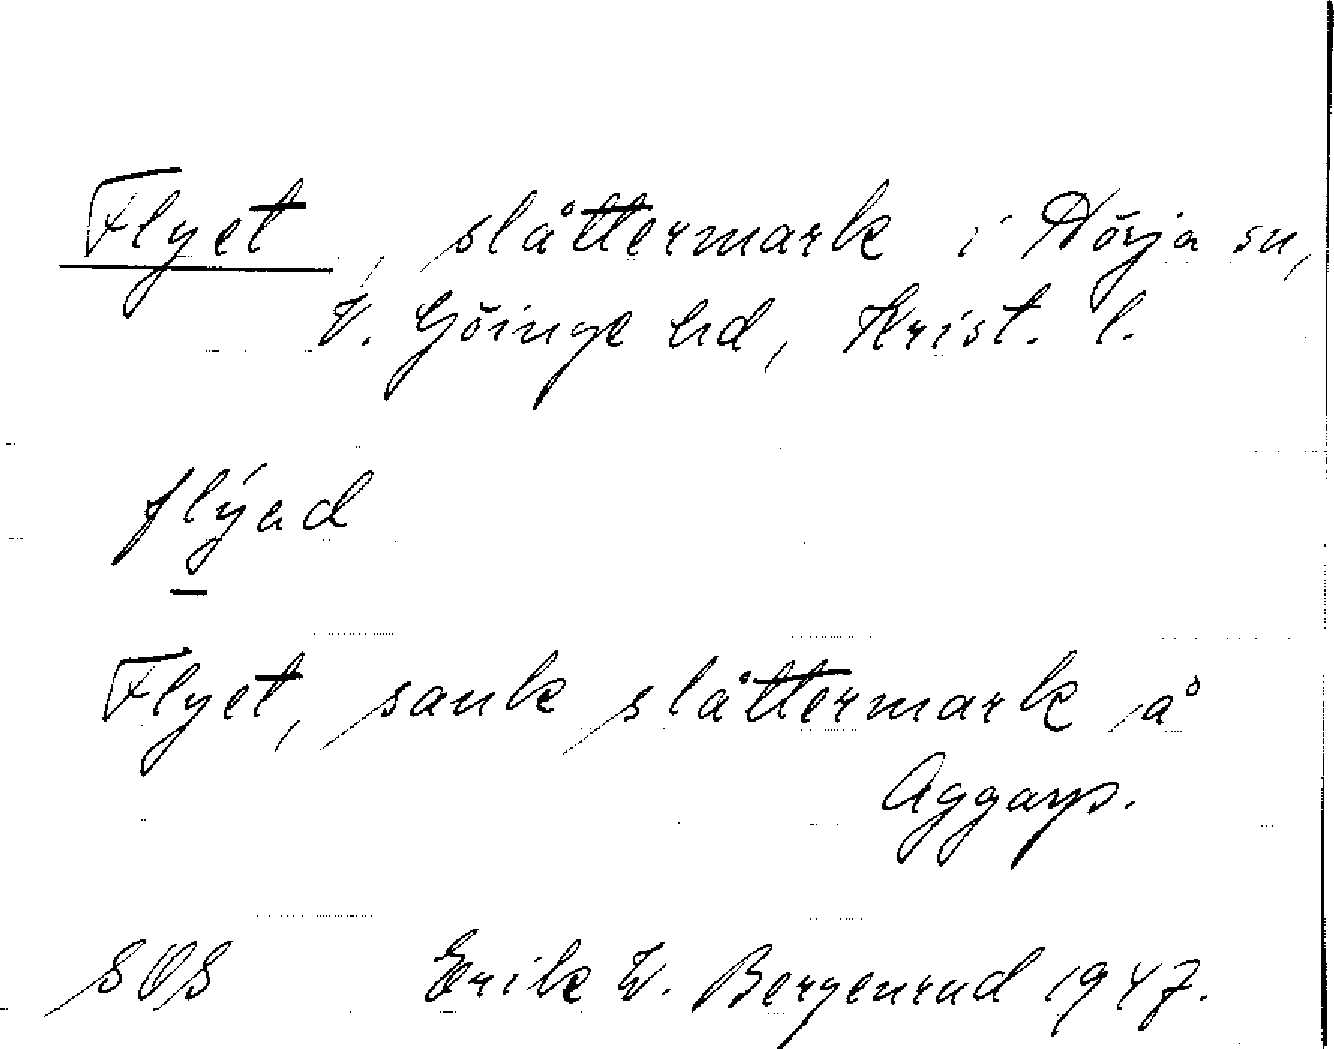 Flyet, slåttermark i Nörja sn,
V. Göinge hd, Krist. l.
flýad
Flyet, sank slåttermark å
Aggarp.
SOS Erik W. Bergenrud 1947.